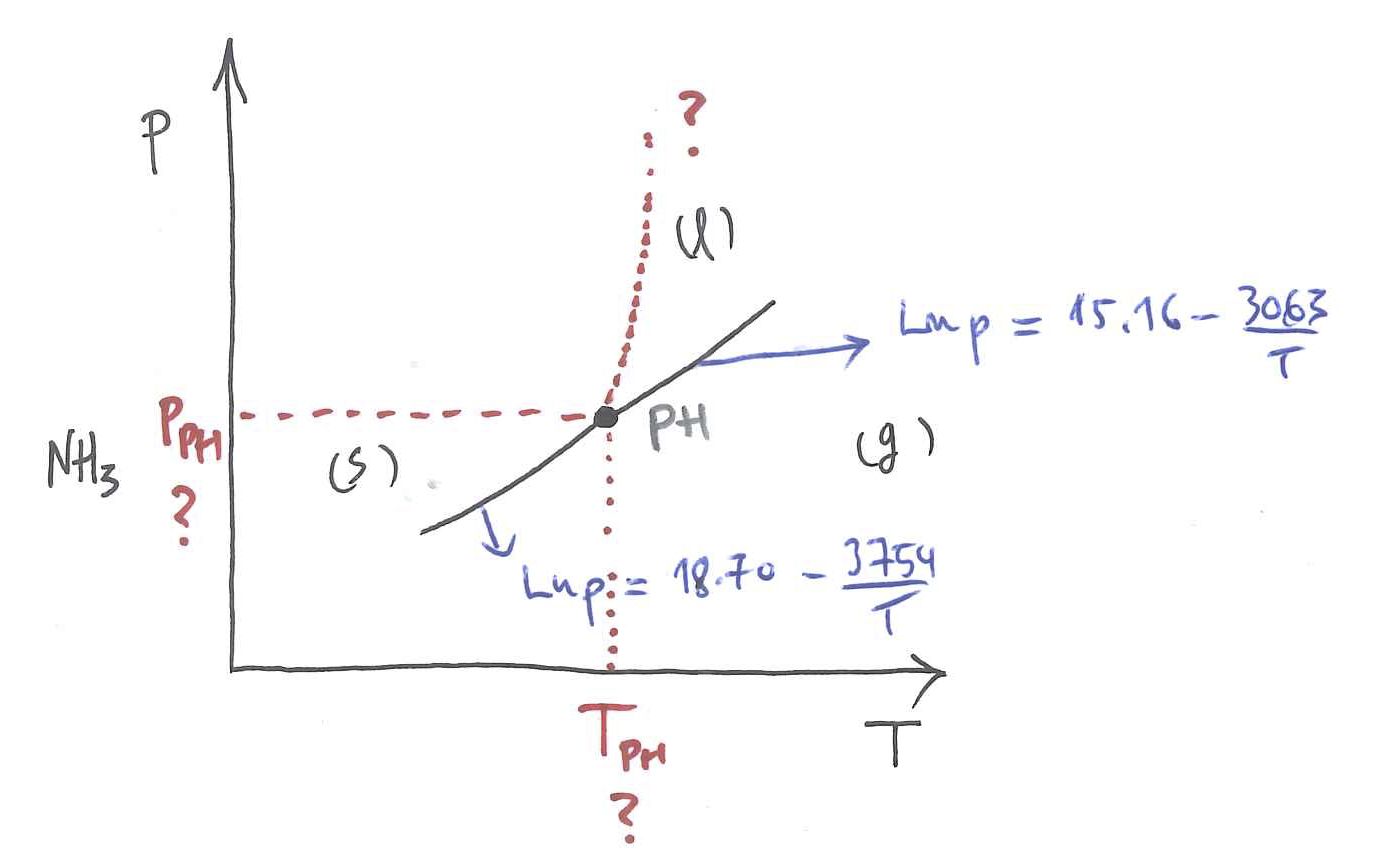 ?
P
(l)
Ln p = 15.16 - 3063/T
P_PH
PH
NH₃
(s)
(g)
?
Ln p = 18.70 - 3754/T
T_PH
T
?